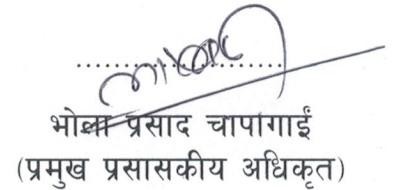 भोला प्रसाद चापागाईं
(प्रमुख प्रसासकीय अधिकृत)